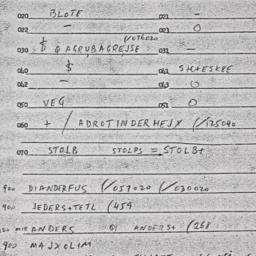 020 BLOTE 021 -
022 - 023 O
(/076020
030 $ @ AGRUBAGREJSE 031 -
040 $ 041 S++ESKEE
042 - 043 O
050 VEG 051 O
060 + / ADROTINDERHEJX (/125040
070 STOLB STOLPS = STOLB+
900 DIANDERFUS (/057020 (/030020
900 JEDERS+TETL (459
ANDERS @) ANDERS+ (268
900 MAJXOLIM